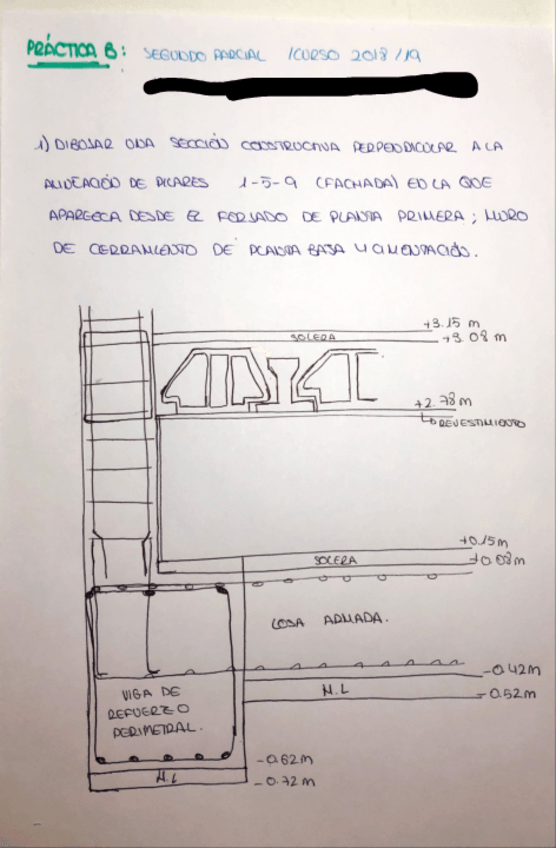 PRÁCTICA B: SEGUNDO PARCIAL /CURSO 2018/19
1) DIBUJAR UNA SECCIÓN CONSTRUCTIVA PERPENDICULAR A LA
ALINEACIÓN DE PILARES 1-5-9 (FACHADA) EN LA QUE
APAREZCA DESDE EL FORJADO DE PLANTA PRIMERA; MURO
DE CERRAMIENTO DE PLANTA BAJA Y CIMENTACIÓN.
+3.15 m
SOLERA +3.08 m
+2.78 m
REVESTIMIENTO
+0.15m
SOLERA +0.08m
LOSA ARMADA.
-0.42m
H.L -0.52m
VIGA DE
REFUERZO
PERIMETRAL.
-0.62m
H.L -0.72m